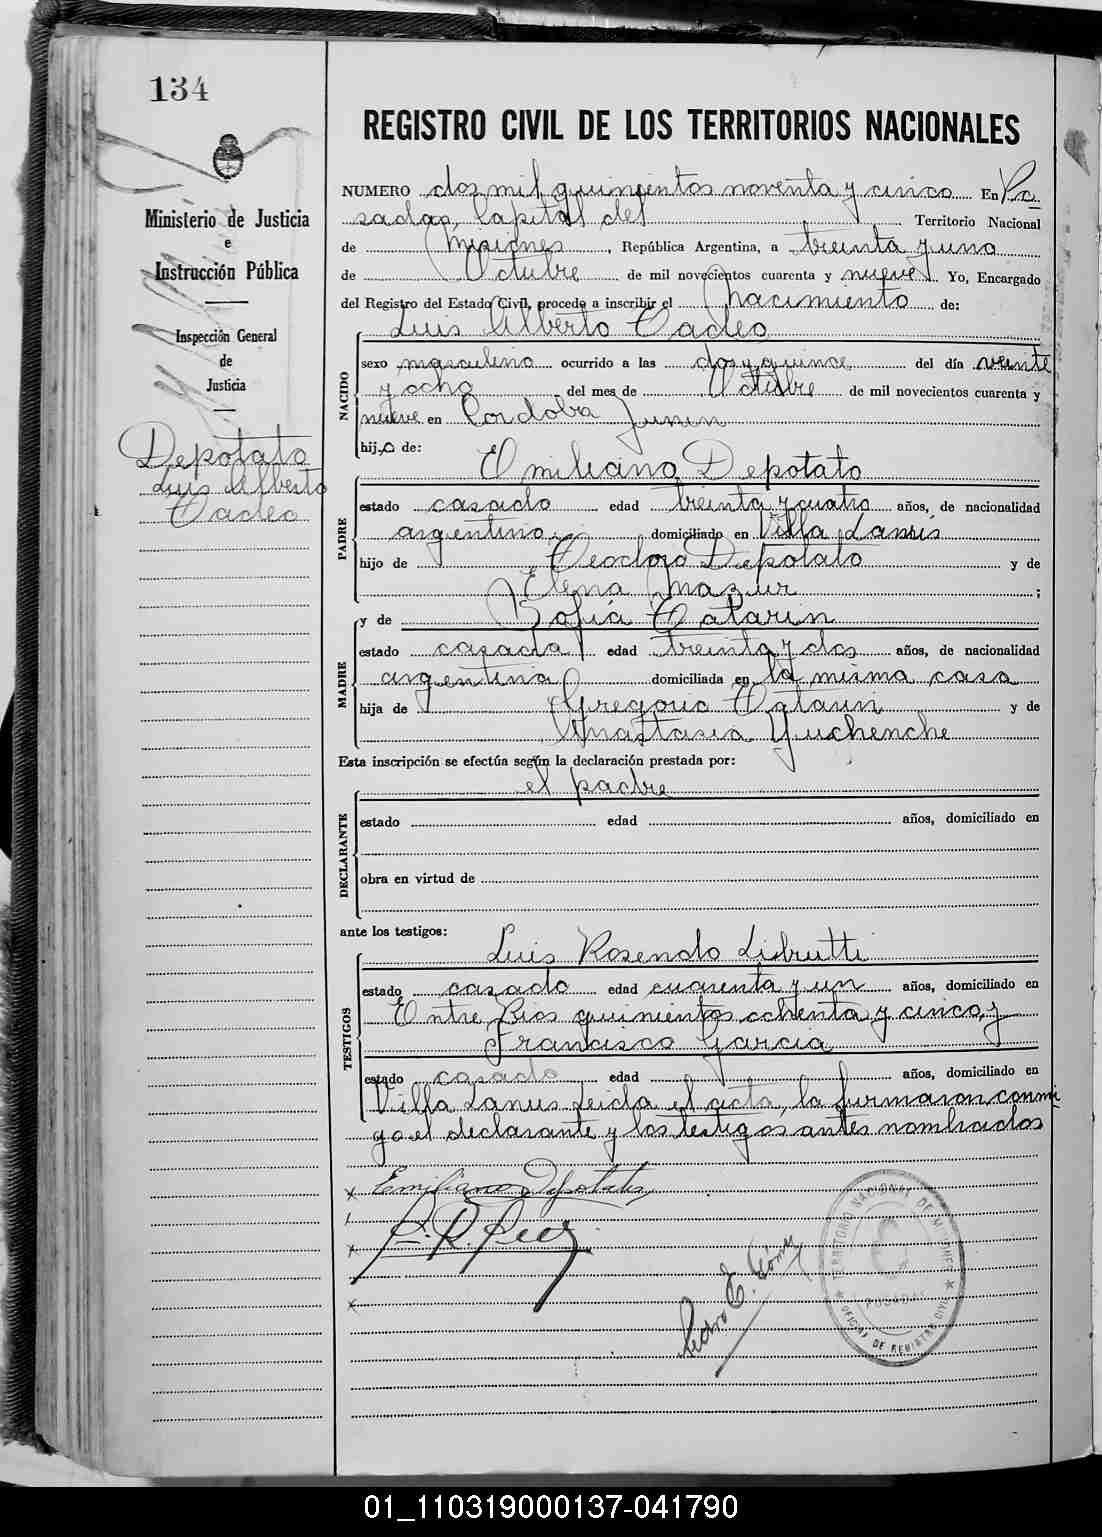 134
Ministerio de Justicia
e
Instrucción Pública
Inspección General
de
Justicia
Depotato
Luis Alberto
Tadeo
REGISTRO CIVIL DE LOS TERRITORIOS NACIONALES
NUMERO dos mil quinientos noventa y cinco En Po
sadas, Capital del Territorio Nacional
de Misiones, República Argentina, a treinta y uno
de Octubre de mil novecientos cuarenta y nueve Yo, Encargado
del Registro del Estado Civil, procedo a inscribir el Nacimiento de:
Luis Alberto Tadeo
NACIDO
sexo masculino ocurrido a las dos y quince del día veinte
y ocho del mes de Octubre de mil novecientos cuarenta y
nueve en Cordoba Junin
hijo de:
Emiliano Depotato
PADRE
estado casado edad treinta y cuatro años, de nacionalidad
argentino domiciliado en Villa Lanús
hijo de Teodoro Depotato y de
Elena Mazur ;
y de Sofía Catarin
MADRE
estado casada edad treinta y dos años, de nacionalidad
argentina domiciliada en la misma casa
hija de Gregorio Catarin y de
Anastasia Yuchenche
Esta inscripción se efectúa según la declaración prestada por:
el padre
DECLARANTE
estado edad años, domiciliado en
obra en virtud de
ante los testigos:
Luis Rosendo Librutti
TESTIGOS
estado casado edad cuarenta y un años, domiciliado en
Entre Rios quinientos ochenta y cinco y
Francisco Garcia
estado casado edad años, domiciliado en
Villa Lanus Leida el acta, la firmaron conmi
go el declarante y los testigos antes nombrados
Emiliano Depotato
Pedro E. Gómez
TERRITORIO NACIONAL DE MISIONES
POSADAS
OFICINA DE REGISTRO CIVIL
01_110319000137-041790